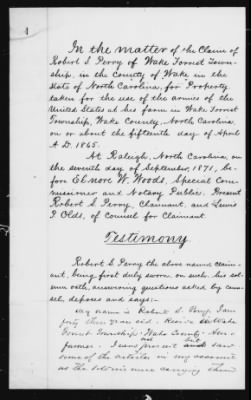 In the matter of the Claim of
Robert S Perry of Wake Forrest Town-
ship, in the County of Wake in the
State of North Carolina, for Property
taken for the use of the armies of the
United States at his farm in Wake Forrest
Township, Wake County, North Carolina
on or about the fifteenth day of April
A.D. 1865.
At Raleigh, North Carolina, on
the seventh day of September, 1871, be-
fore Elnore W. Woods, Special Com-
missioner and Notary Public. Present
Robert S. Perry, Claimant, and Lewis
P. Olds, of Counsel for Claimant.
Testimony
Robert S. Perry the above named claim-
ant, being first duly sworn, on such his sol-
emn oath, answering questions asked by coun-
sel, deposes and says:-
My name is Robert S. Perry. I am
forty three years old. Reside in Wake
Forrest Township. Wake County. Am a
farmer. I was not present and saw
some of the articles in my account
as the soldiers were carrying them